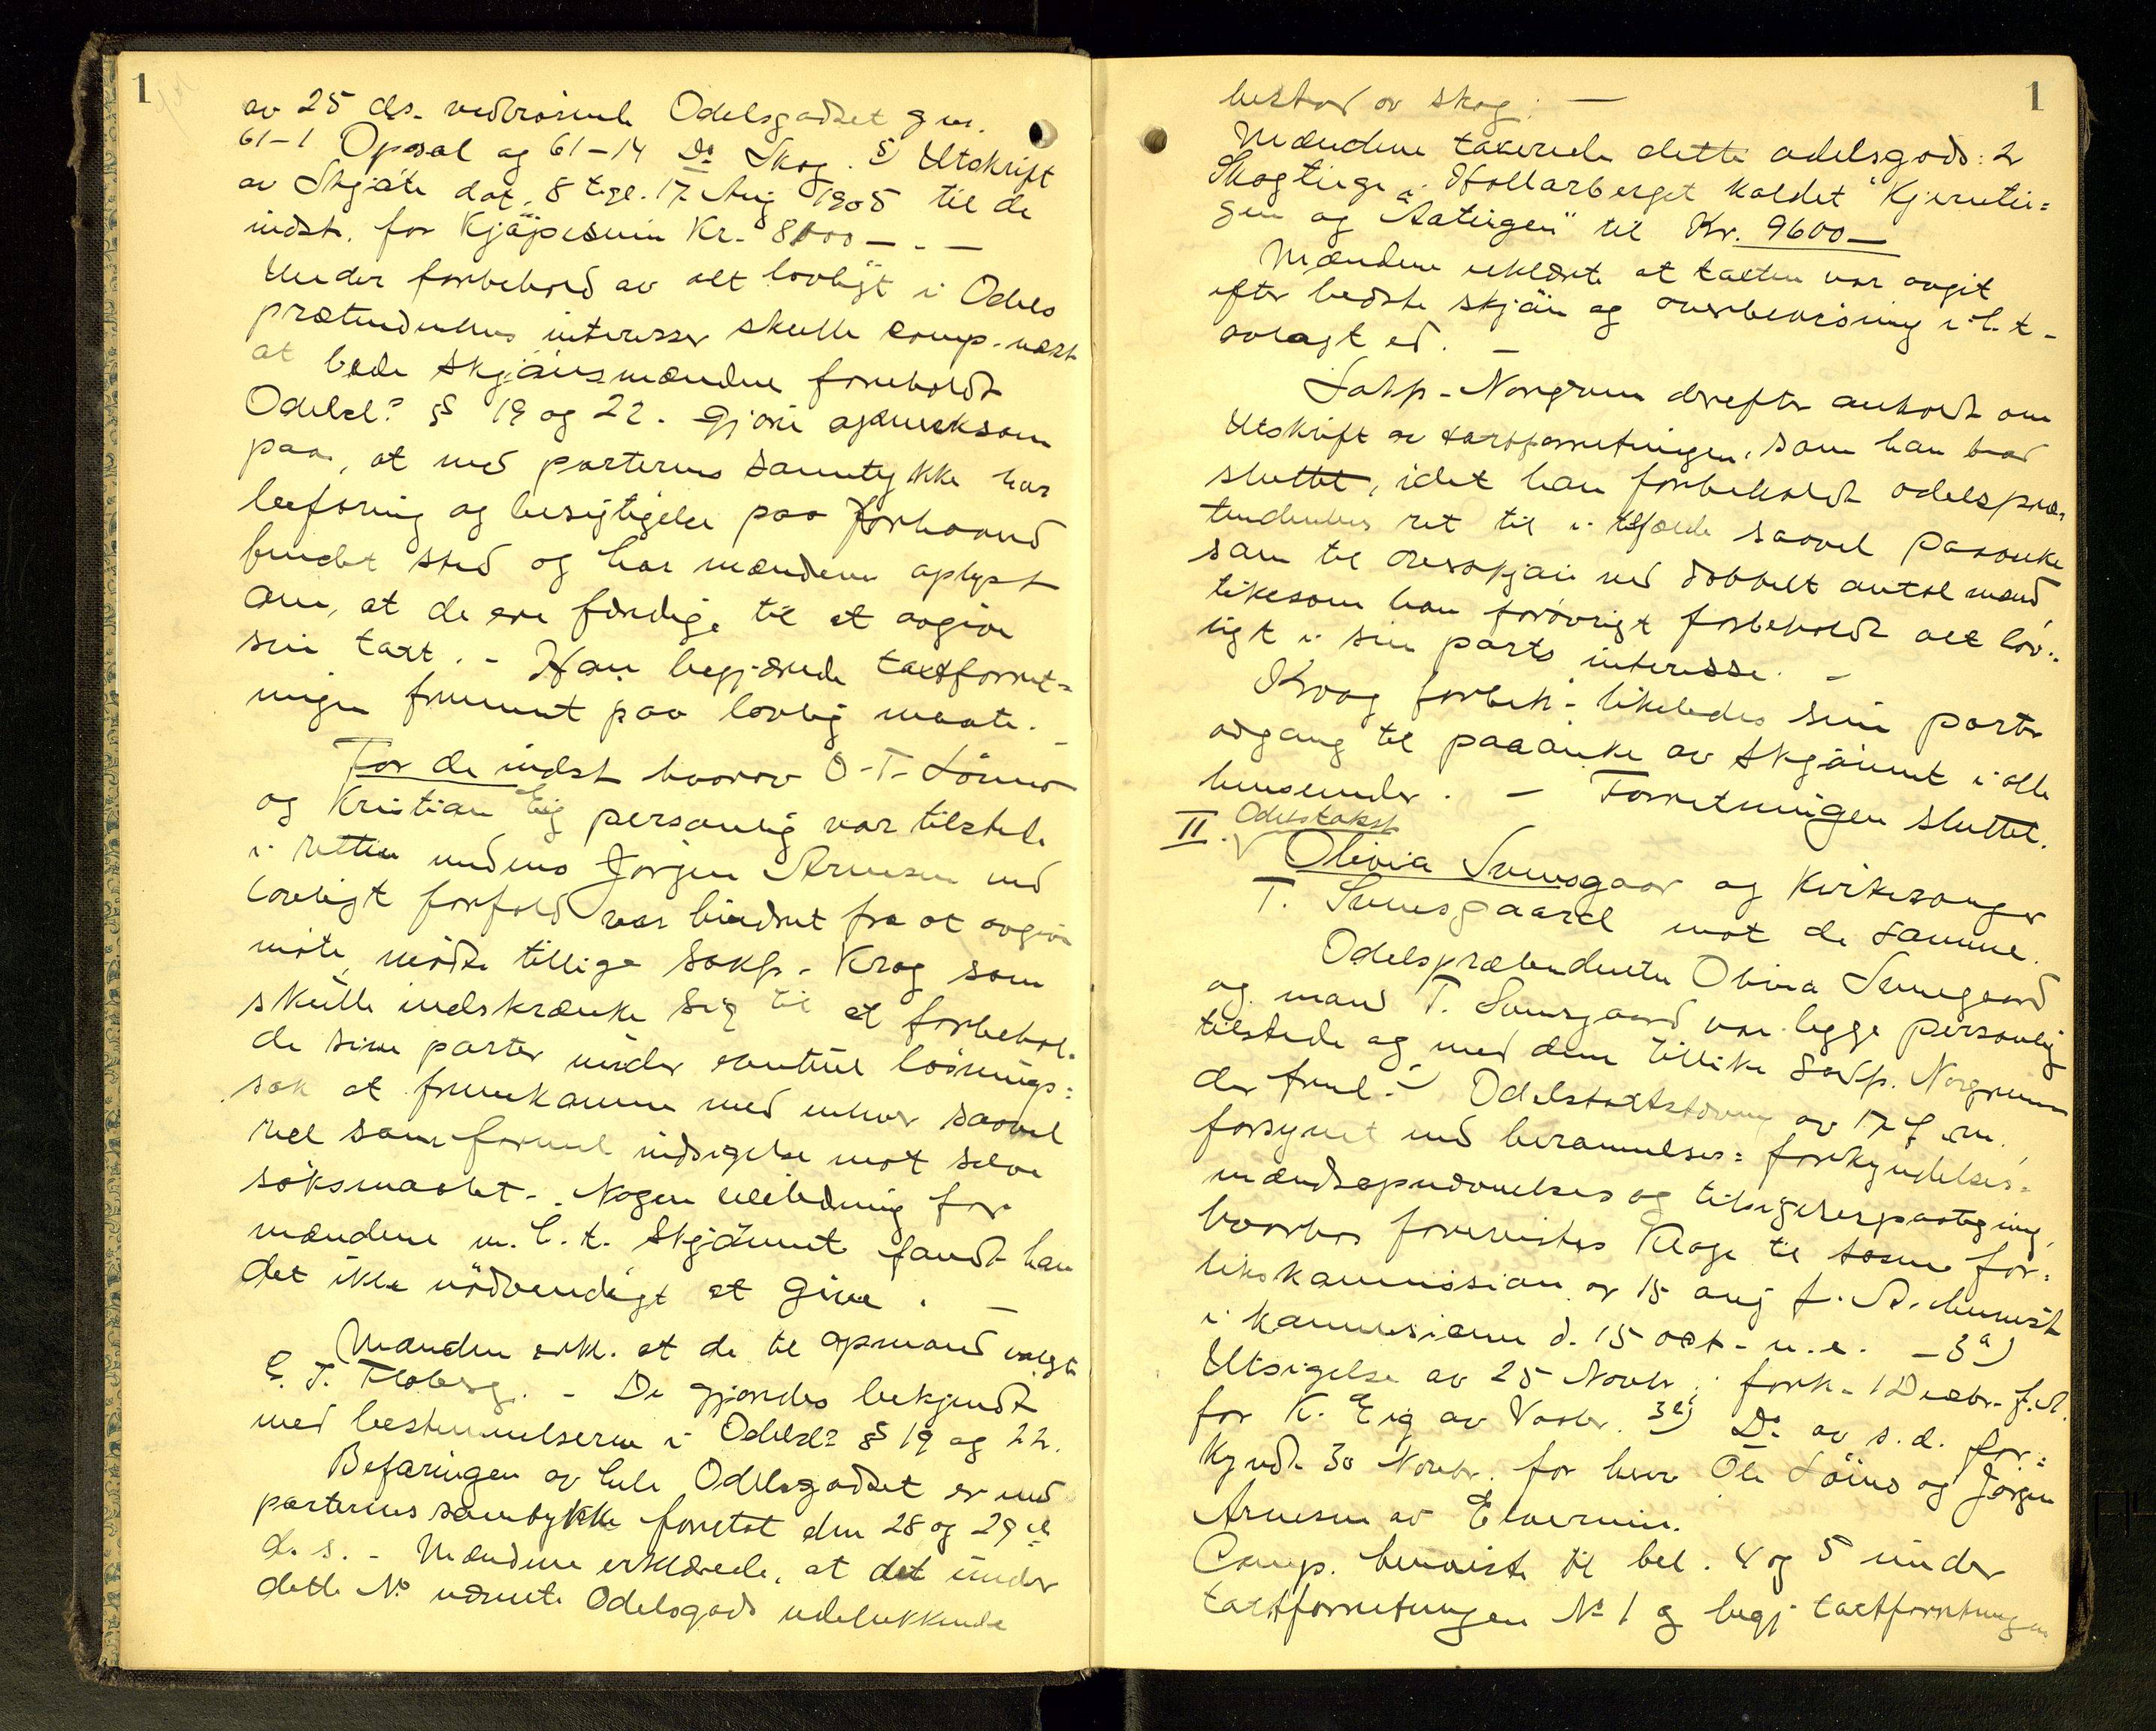 1
av 25 ds. vedrørende Odelsgodset g.nr.
61-1 Opsal og 61-14 Do Skog. 5) Utskrift
av Skjøte dat. 8 tgl. 17. Aug 1905 til de
indst. for Kjøpesum Kr. 8000 - . -
Under forbehold av alt lovligt i Odels
prætendentens interesser skulde comp. næst
at bede skjønsmændene foreholdt
Odelsl? §§ 19 og 22. gjøre opmerksom
paa, at med parternes samtykke har
befaring og besigtigelse paa forhaand
fundet sted og har mændene oplyst
om, at de ere færdige til at avgive
sin taxt. - Han begjærede taxtforret=
ningen fremmet paa lovlig maate. -
For de indst hvorav O. T. Lönes
og Kristian Eig personlig var tilstede
i retten medens Jørgen Arnesen ved
lovligt forfald var hindret fra at avgive
møte, mødte tillige Sakf. Krog som
skulle indskrænke sig til at forbehol-
de sine parter under eventuel løsnings=
sak at fremkomme med enhver saavel
reel som formel indsigelse mot selve
søksmaalet. - Nogen veiledning for
mændene m. h. t. skjønnet fandt han
det ikke nødvendigt at give. -
Mændene erkl. at de til opmand valgte
E. T. Floberg. - De gjordes bekjendt
med bestemmelserne i Odelsl? §§ 19 og 22.
Befaringen av hele Odelsgodset er med
parternes samtykke foretat den 28 og 29de
d. s. - Mændene erklærede, at det under
dette No nævnte Odelsgods udelukkende
1
bestod av skog. -
Mændene taxerede dette odelsgods: 2
Skogteige i Hollarberget kaldet "Kjerntei=
gen og Aateigen" til Kr. 9600 -
Mændene erklærte at taxten var avgit
efter bedste skjøn og overbevisning i h. t.
avlagt ed. -
Sakf. Norgrenn derefter anholdt om
Utskrift av taxtforretningen, som han bad
sluttet, idet han forbeholdt odelspræ-
tendentens ret til i tilfælde saavel paaanke
som til overskjøn med dobbelt antal mænd
likesom han forøvrigt forbeholdt alt lov-
ligt i sin parts interesse. -
Krog forbeh. likeledes sine parter
adgang til paaanke av skjønnet i alle
henseender. - Forretningen sluttet.
II. Odelstakst
Olivia Svensgaar og Kirkesanger
T. Svensgaard mot de samme.
Odelsprætendenten Olivia Svensgaard
og mand T. Svensgaard var begge personlig
tilstede og med dem tillike Sakf. Norgrenn
der freml. - Odelstaxtstevning av 17 f. m.
forsynet med berammelses= forkyndelses-
mændsopnævnelses og tilsigelsespaategning,
hvorhos fremvistes Klage til samme for=
likskommission av 15 aug f. A. henvist
i kommissionen d. 15 okt. n. e. - 3a)
Utsigelse av 25 Novbr. fork. 1 Decbr. f. A.
for K. Eig av Vaaler. 3b) Do av s. d. for=
kyndt 30 Novbr. for herr Ole Lönes og Jørgen
Arnesen av Elverum.
Comp. henviste til bil. 4 og 5 under
taxtforretningen No 1 og begj taxtforretningen